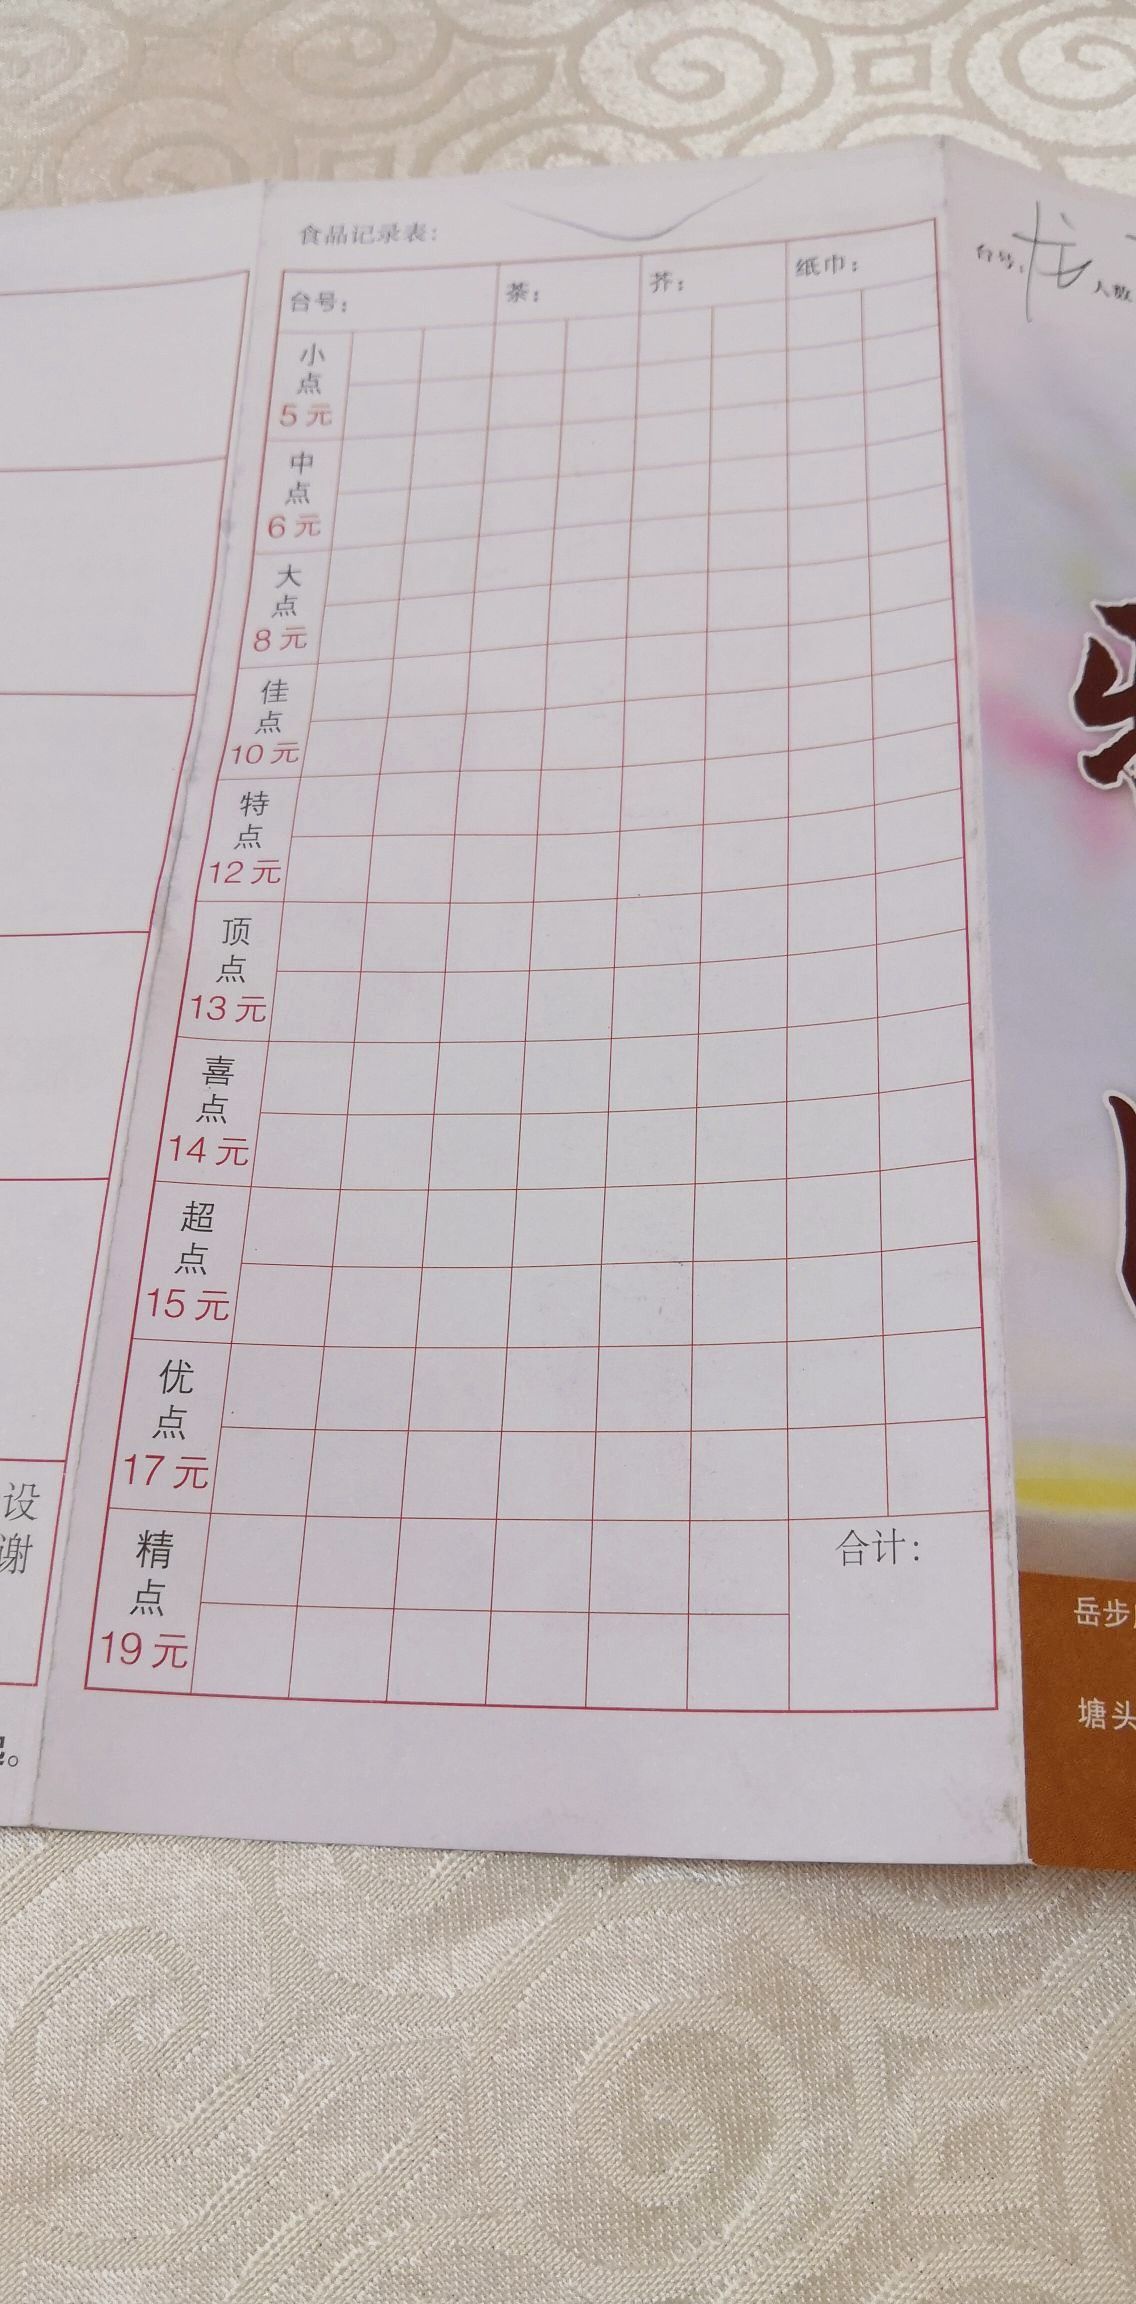 食品记录表：
台号：
茶：
芥：
纸巾：
小点
5元
中点
6元
大点
8元
佳点
10元
特点
12元
顶点
13元
喜点
14元
超点
15元
优点
17元
精点
19元
合计：
设
谢
台号：
人数
岳步
塘头